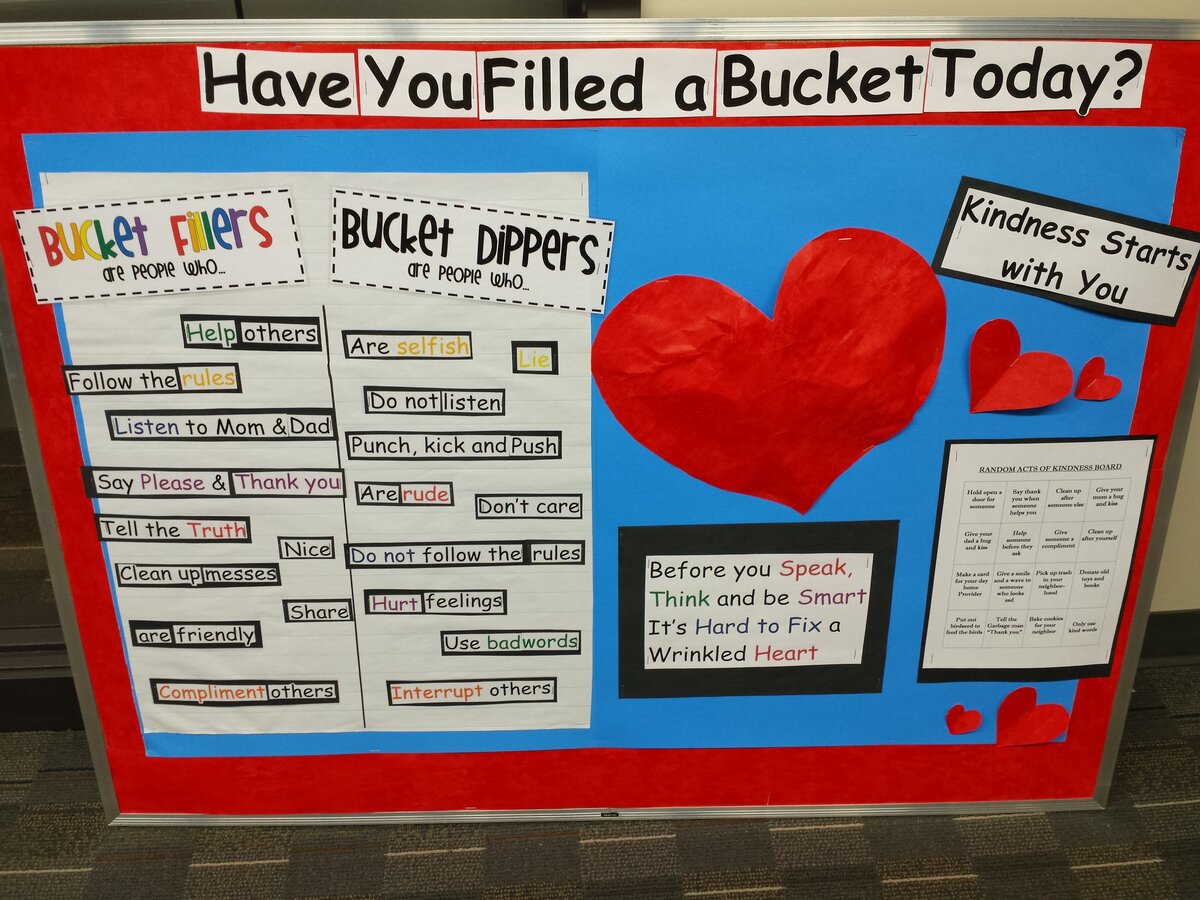 Have You Filled a Bucket Today?
Bucket Fillers
are people who...
Help others
Follow the rules
Listen to Mom & Dad
Say Please & Thank you
Tell the Truth
Nice
Clean up messes
Share
are friendly
Compliment others
Bucket Dippers
are people who...
Are selfish
Lie
Do not listen
Punch, kick and Push
Are rude
Don't care
Do not follow the rules
Hurt feelings
Use badwords
Interrupt others
Before you Speak,
Think and be Smart
It's Hard to Fix a
Wrinkled Heart
Kindness Starts
with You
RANDOM ACTS OF KINDNESS BOARD
Hold open a
door for
someone
Say thank
you when
someone
helps you
Clean up
after
someone else
Give your
mom a hug
and kiss
Give your
dad a hug
and kiss
Help
someone
before they
ask
Give
someone a
compliment
Clean up
after yourself
Make a card
for your day
home
Provider
Give a smile
and a wave to
someone who
looks
sad
Pick up trash
in your
neighbor-
hood
Donate old
toys and
books
Put out
birdseed to
feed the birds
Tell the
Garbage man
"Thank you"
Bake cookies
for your
neighbor
Only use
kind words